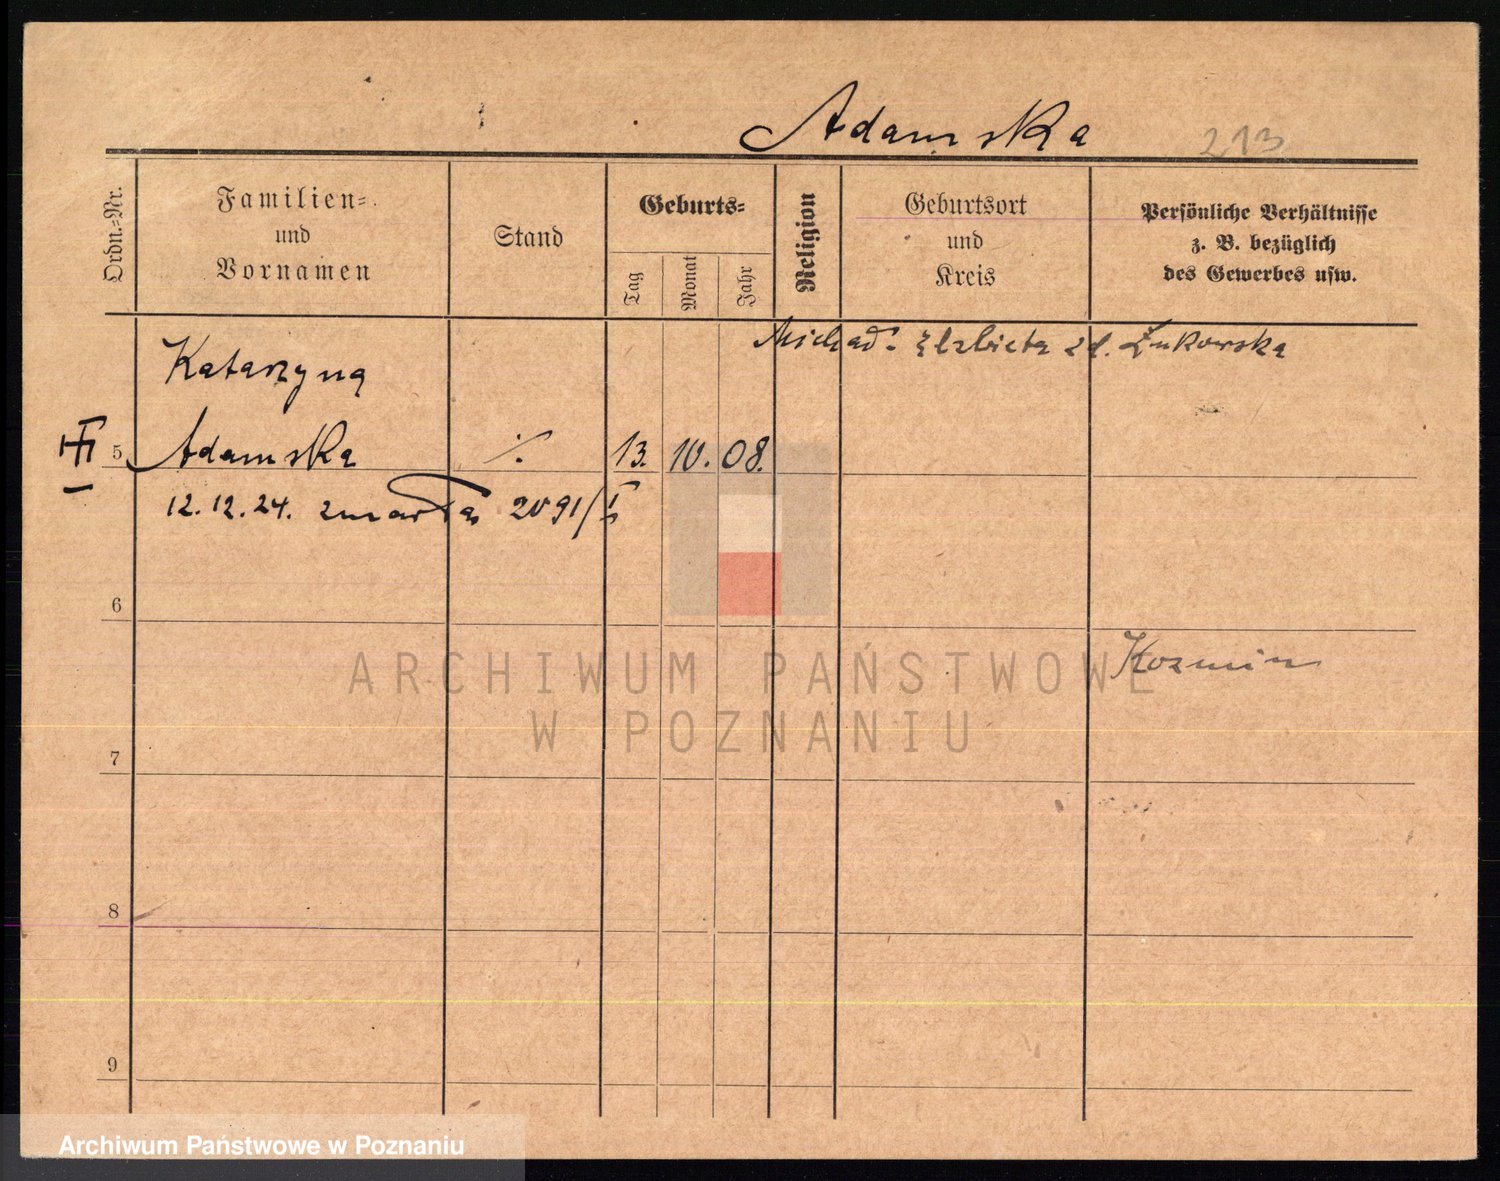 Adamska 213
Ordn.-Nr.
Familien-
und
Vornamen
Stand
Geburts-
Tag
Monat
Jahr
Religion
Geburtsort
und
Kreis
Persönliche Verhältnisse
z. B. bezüglich
des Gewerbes usw.
Michał - Elzbieta zd. Żukowska
Katarzyna
5 Adamska ·/· 13. 10. 08.
12.12.24. zmarła 2091/I
6
Kozmin
7
8
9
ARCHIWUM PAŃSTWOWE
W POZNANIU
Archiwum Państwowe w Poznaniu